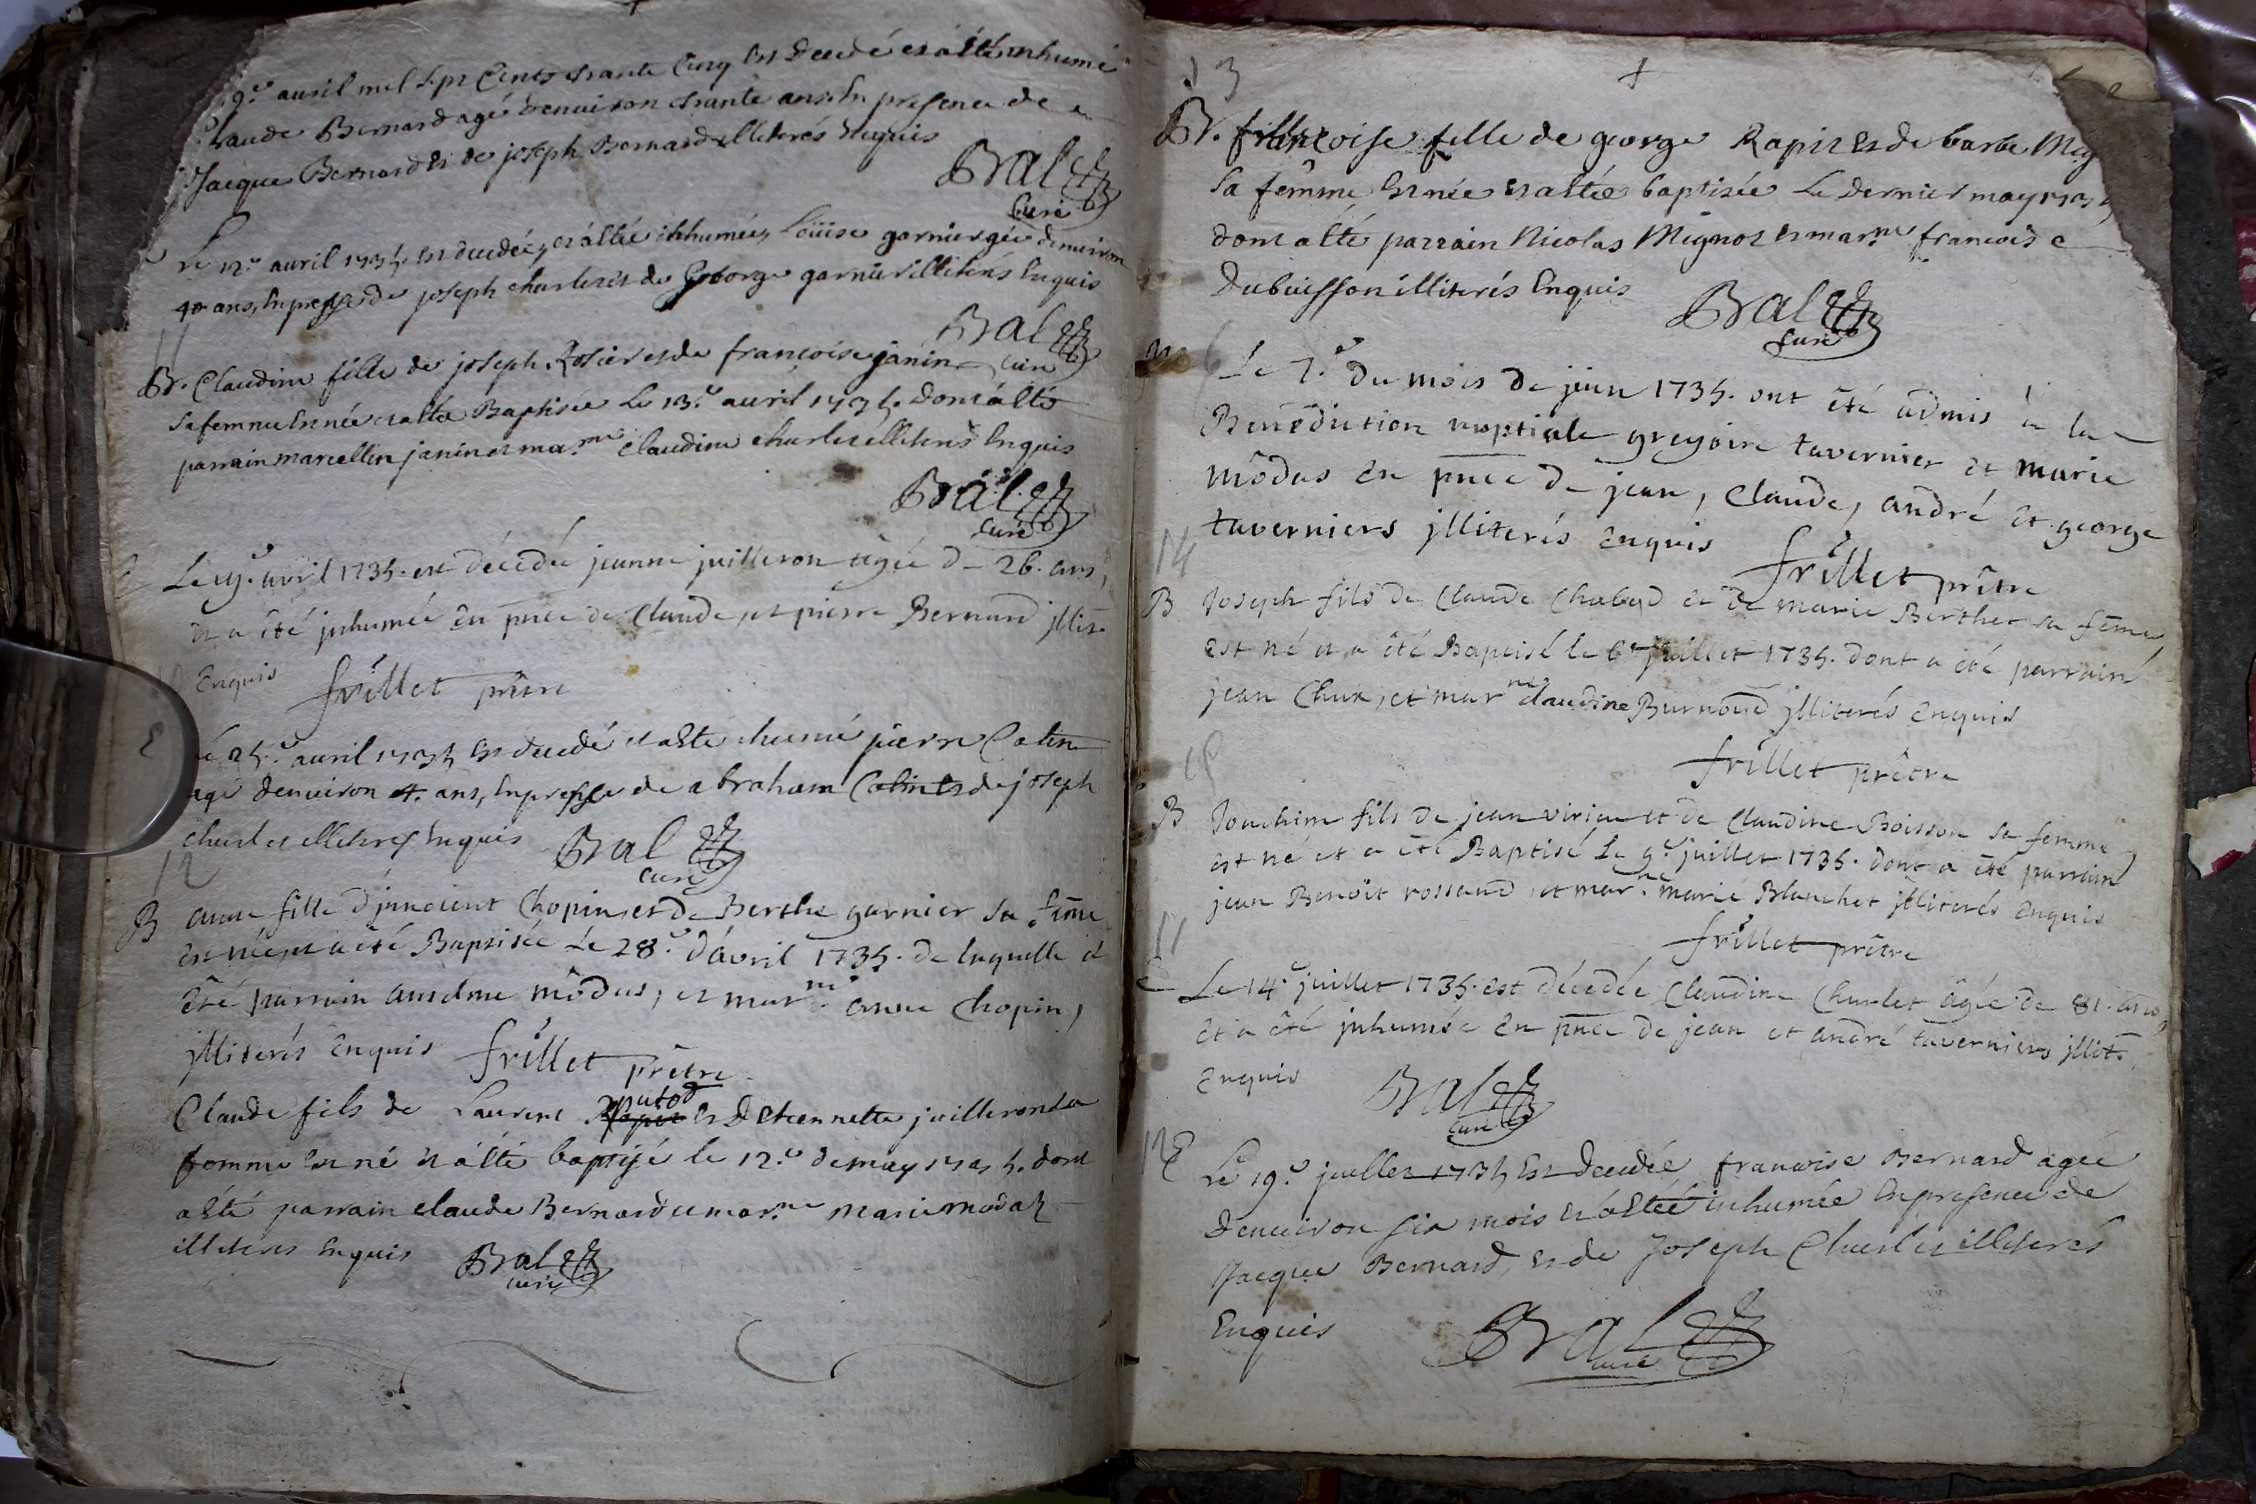 9.e auril mil sept Cents trante Cinq Est decedé et a esté inhumé
Claude Bernard agé denuiron trante ans En presence de
Jacque Bernard et de joseph Bernard illiterés Enquis
Bral
Curé
Le 12.e auril 1735. Est decedée, et a esté inhumée, Loüise garnier agée denuiron
40 ans, En presence de joseph charlet et de George garnier illiterés Enquis
Bral
curé
11
B. Claudine fille de joseph Rosier et de françoise janin
sa femme Est née et a esté Baptisée Le 13.e auril 1735. Dont a esté
parrain marcellin janin et mar.ne Claudine charlet illiterés Enquis
Bral
Curé
Le 19.e avril 1735. est décédée jeanne juilleron âgée de 26. ans,
et a été jnhumée en pnce de Claude, et pierre Bernard jllit.
Enquis frillet prêtre
Le 25.e auril 1735 Est decedé et a esté inhumé pierre Colin
agé denuiron 4. ans, En presence de abraham Colin et de joseph
charlet illiterés Enquis Bral
curé
12
B anne fille d'jnnocent Chopin, et de Berthe garnier sa feme
est née et a été Baptisée Le 28.e d'avril 1735. de laquelle a
été parrain anselme môdas, et mar.ne anne Chopin,
jlliterés enquis frillet prêtre
putod
Claude fils de Laurent Et D'Etiennette juilleron sa
femme Est né et a esté baptisé le 12.e de may 1735. dont
a esté parrain claude Bernard et mar.ne marie modaz
illiterés Enquis Bral
curé
13
B. françoise fille de george Rapit et de barbe Mig
sa femme Est née et a esté baptisée Le dernier may 1735
dont a esté parrain Nicolas Mignot et mar.ne francoise
Dubuisson illiterés Enquis Bral
Curé
Le 7.e du mois de juin 1735. ont été admis à la
Benediction nuptiale gregoire tavernier et marie
môdas en pnce de jean, Claude, andré et george
taverniers jlliterés enquis frillet prêtre
14
B Joseph fils de Claude Chabod et de marie Berthet sa feme
est né et a été Baptisé le 6.e juillet 1735. dont a été parrain
jean Chux, et mar.ne claudine Burnoud jlliterés enquis
frillet prêtre
B Jouchim fils de jean viriou et de Claudine Boisson sa femme
est né et a été Baptisé Le 9.e juillet 1735. dont a été parrain
jean Benoît rossand, et mar.ne marie Blanchet jlliterés enquis
11 frillet prêtre
Le 14.e juillet 1735. est décédée Claudine Charlet âgée de 81. ans
et a été jnhumée en pnce de jean et andré taverniers jllit.
enquis Bral
Curé
12
Le 19.e juillet 1735 Est decedée francoise Bernard agée
denuiron six mois et a estée inhumée En presence de
Jacque Bernard, et de Joseph Charlet illiterés
Enquis Bral
curé